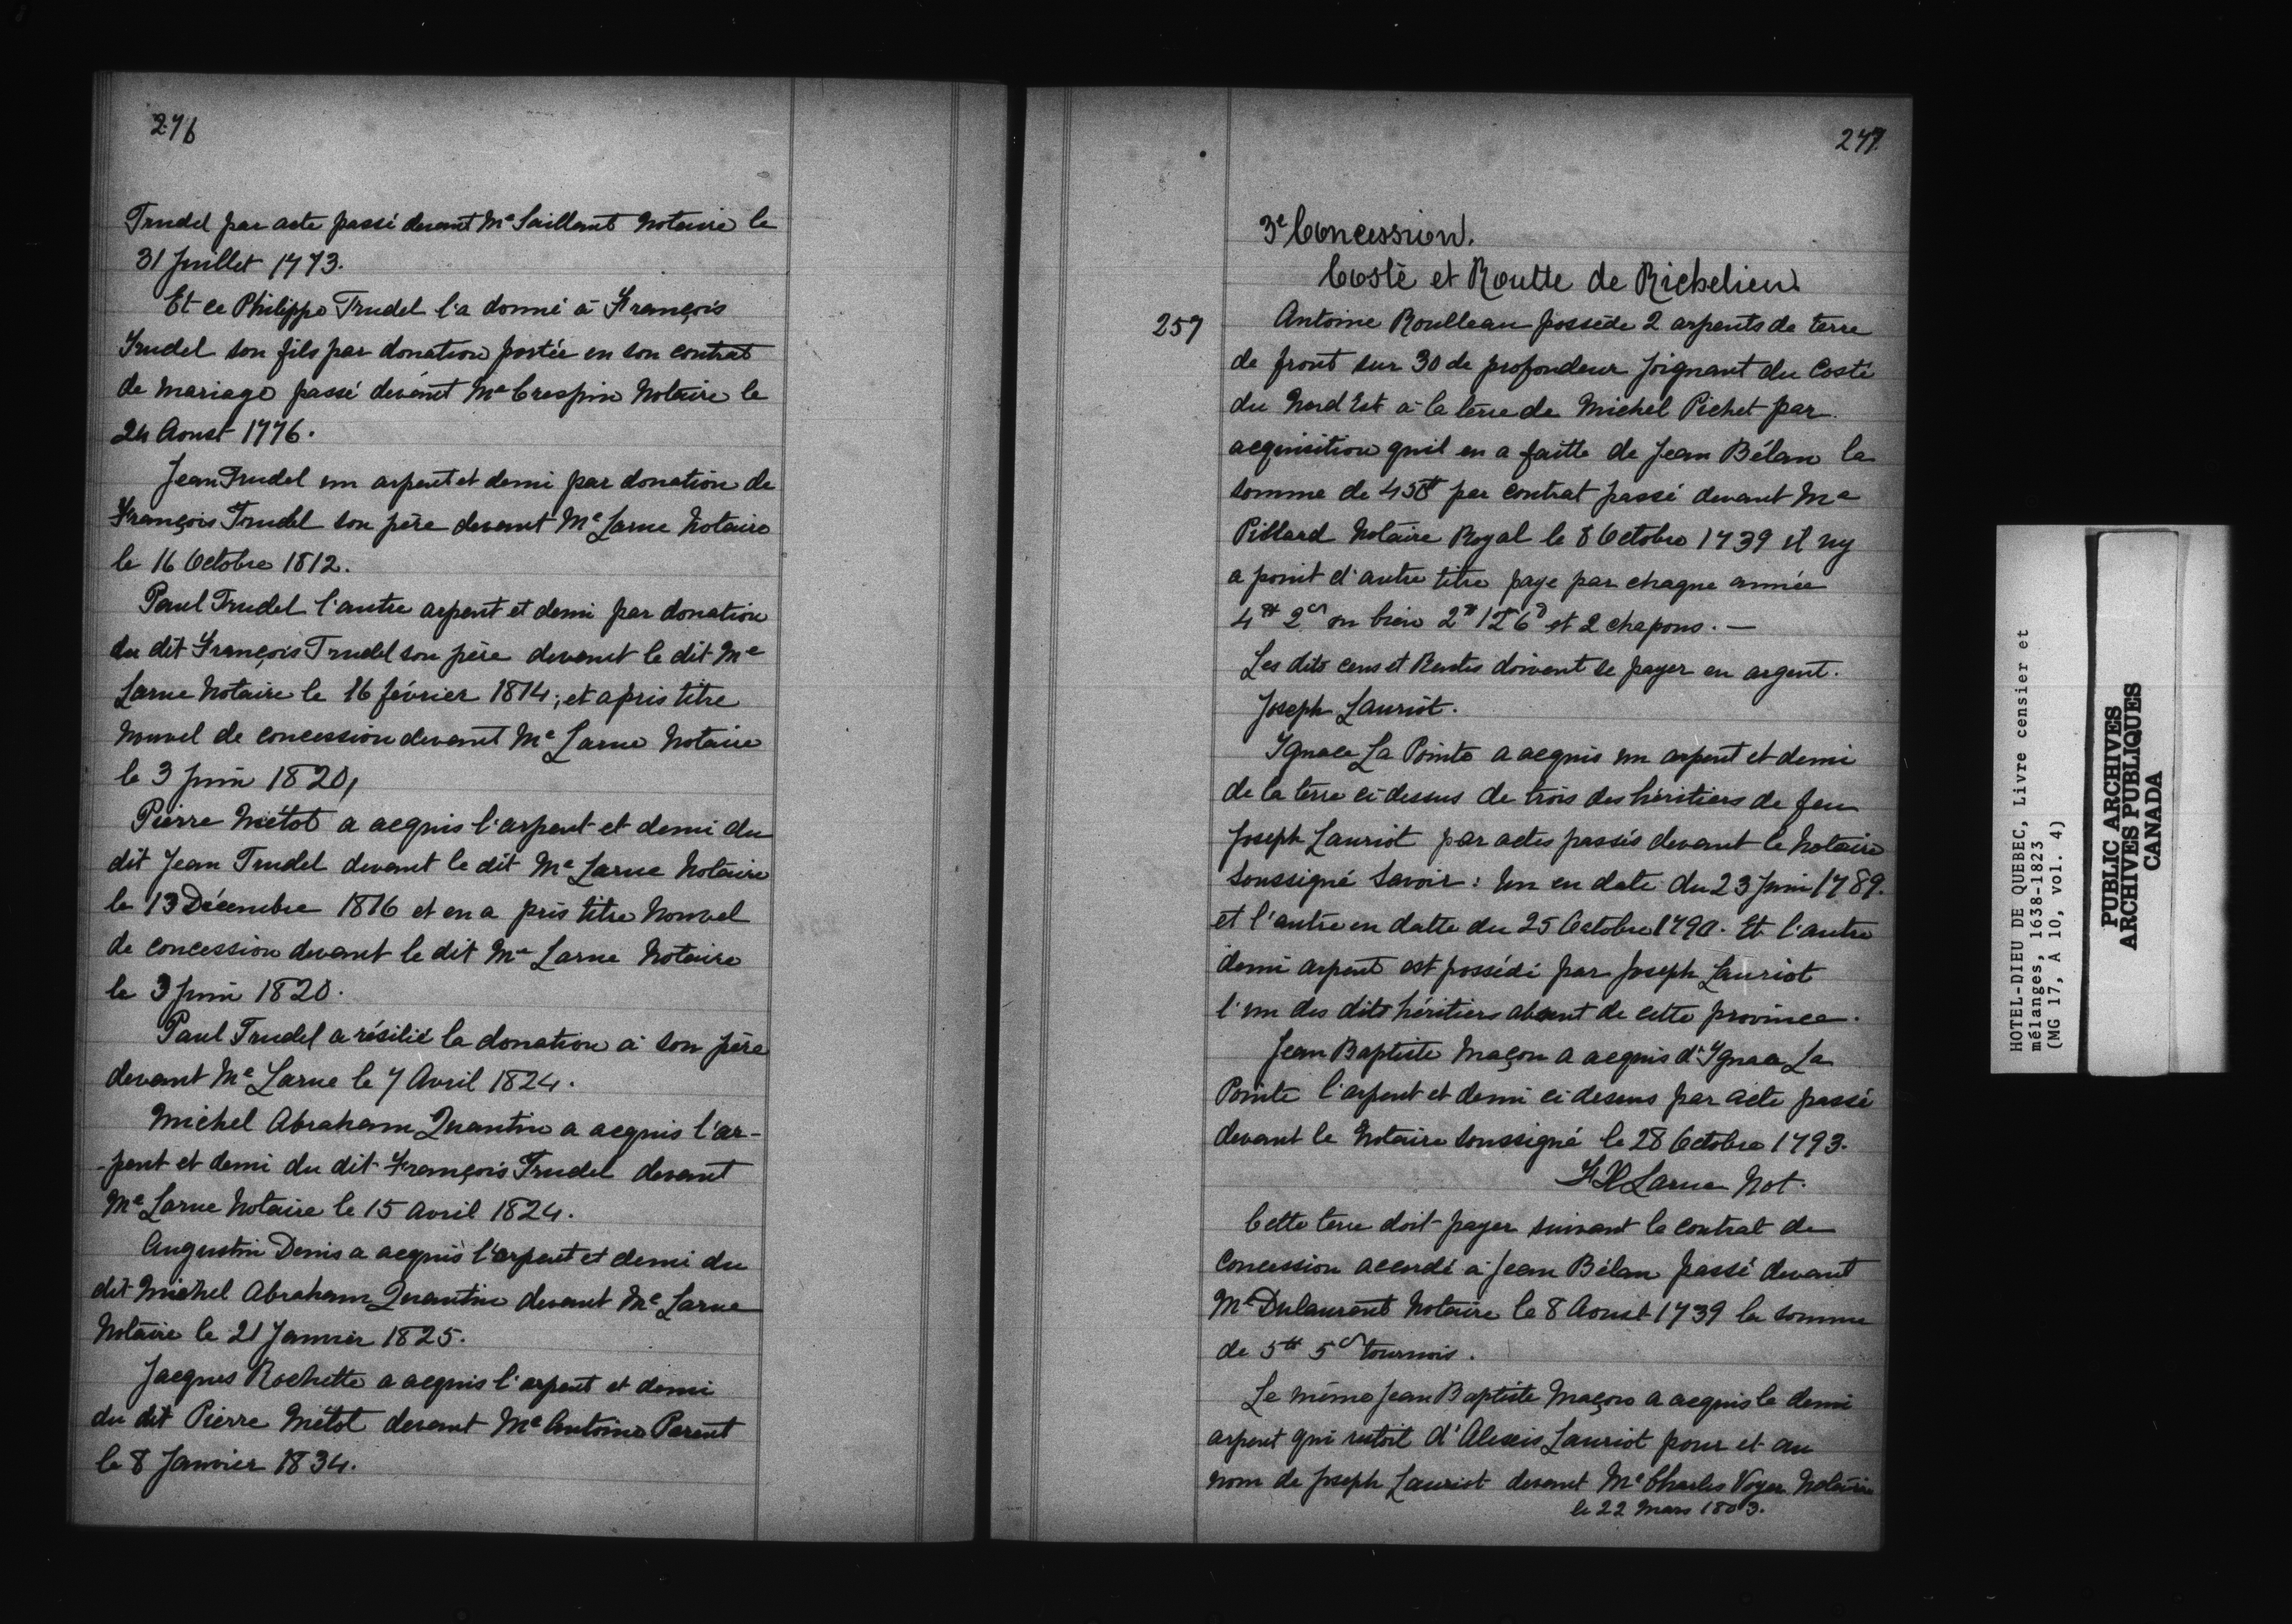 276
Trudel par acte passé devant Me Saillant Notaire le
31 Juillet 1773.
Et ce Philippe Trudel l'a donné à François
Trudel son fils par donation portée en son contrat
de mariage passé devant Me Crespin Notaire le
24 Aoust 1776.
Jean Trudel un arpent et demi par donation de
François Trudel son père devant Me Larue Notaire
le 16 Octobre 1812.
Paul Trudel l'autre arpent et demi par donation
du dit François Trudel son père devant le dit Me
Larue Notaire le 16 février 1814; et a pris titre
Nouvel de concession devant Me Larue Notaire
le 3 Juin 1820,
Pierre Métot a acquis l'arpent et demi du
dit Jean Trudel devant le dit Me Larue Notaire
le 13 Décembre 1816 et en a pris titre Nouvel
de concession devant le dit Me Larue Notaire
le 3 Juin 1820.
Paul Trudel a résilié la donation à son père
devant Me Larue le 7 Avril 1824.
Michel Abraham Quantin a acquis l'ar-
-pent et demi du dit François Trudel devant
Me Larue Notaire le 15 Avril 1824.
Augustin Denis a acquis l'arpent et demi du
dit Michel Abraham Quantin devant Me Larue
Notaire le 21 Janvier 1825.
Jacques Rochette a acquis l'arpent et demi
du dit Pierre Métot devant Me Antoine Parent
le 8 Janvier 1834.
277
3e Concession.
Costé et Routte de Richelieu.
257 Antoine Roulleau possède 2 arpents de terre
de front sur 30 de profondeur joignant du Costé
du Nord Est à la terre de Michel Pichet par
acquisition quil en a faitte de Jean Bélan la
somme de par contrat passé devant Me
Pillard Notaire Royal le 8 Octobre 1739 il ny
a point d'autre titre paye par chaque année
4tt 2s ou bien 2tt 12s 6d et 2 chapons. —
Les dits cens et Rentes doivent se payer en argent.
Joseph Lauriot.
Ygnace La Pointe a acquis un arpent et demi
de la terre ci dessus de trois des héritiers de feu
Joseph Lauriot par actes passés devant le Notaire
Soussigné Savoir: Un en date du 23 Juin 1789.
et l'autre en datte du 25 Octobre 1790. Et l'autre
demi arpent est possédé par Joseph Lauriot
l'un des dits héritiers absent de cette province.
Jean Baptiste Maçon a acquis d'Ygnace La
Pointe l'arpent et demi ci dessus par acte passé
devant le Notaire soussigné le 28 Octobre 1793.
FX Larue Not.
Cette terre doit payer suivant le contrat de
Concession accordé à Jean Bélan passé devant
Me Dulaurent Notaire le 8 Aoust 1739 la somme
de 5tt 5s tournois.
Le même Jean Baptiste Maçon a acquis le demi
arpent qui restoit d'Alexis Lauriot pour et au
nom de Joseph Lauriot devant Me Charles Voyer Notaire
le 22 Mars 1803.
HOTEL-DIEU DE QUEBEC, Livre censier et
mélanges, 1638-1823
(MG 17, A 10, vol. 4)
PUBLIC ARCHIVES
ARCHIVES PUBLIQUES
CANADA